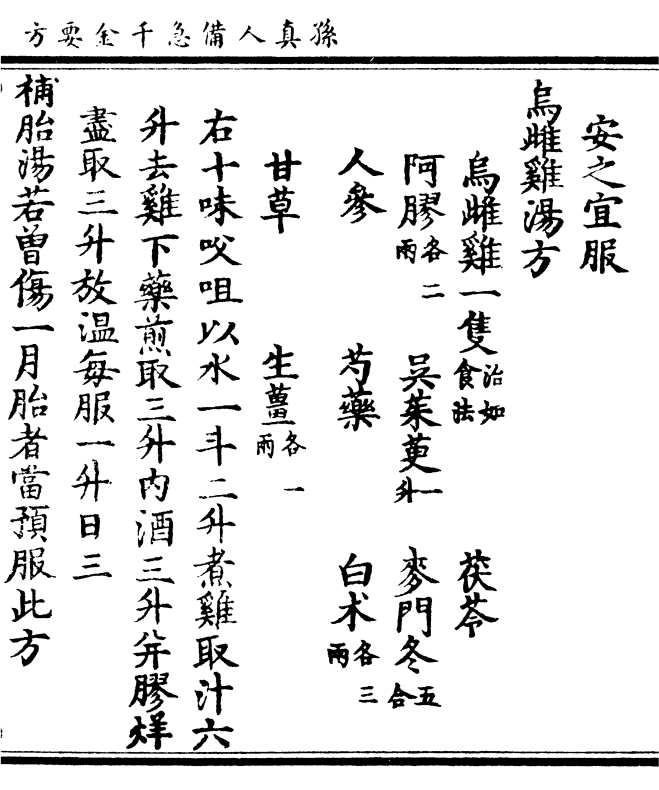 孫真人備急千金要方
安之宜服
烏雌雞湯方
烏雌雞一隻治如食法　茯苓
阿膠各二兩　吳茱萸一升　麥門冬五合
人參　芍藥　白术各三兩
甘草　生薑各一兩
右十味㕮咀以水一斗二升煮雞取汁六
升去雞下藥煎取三升內酒三升并膠烊
盡取三升放温每服一升日三
補胎湯若曾傷一月胎者當預服此方